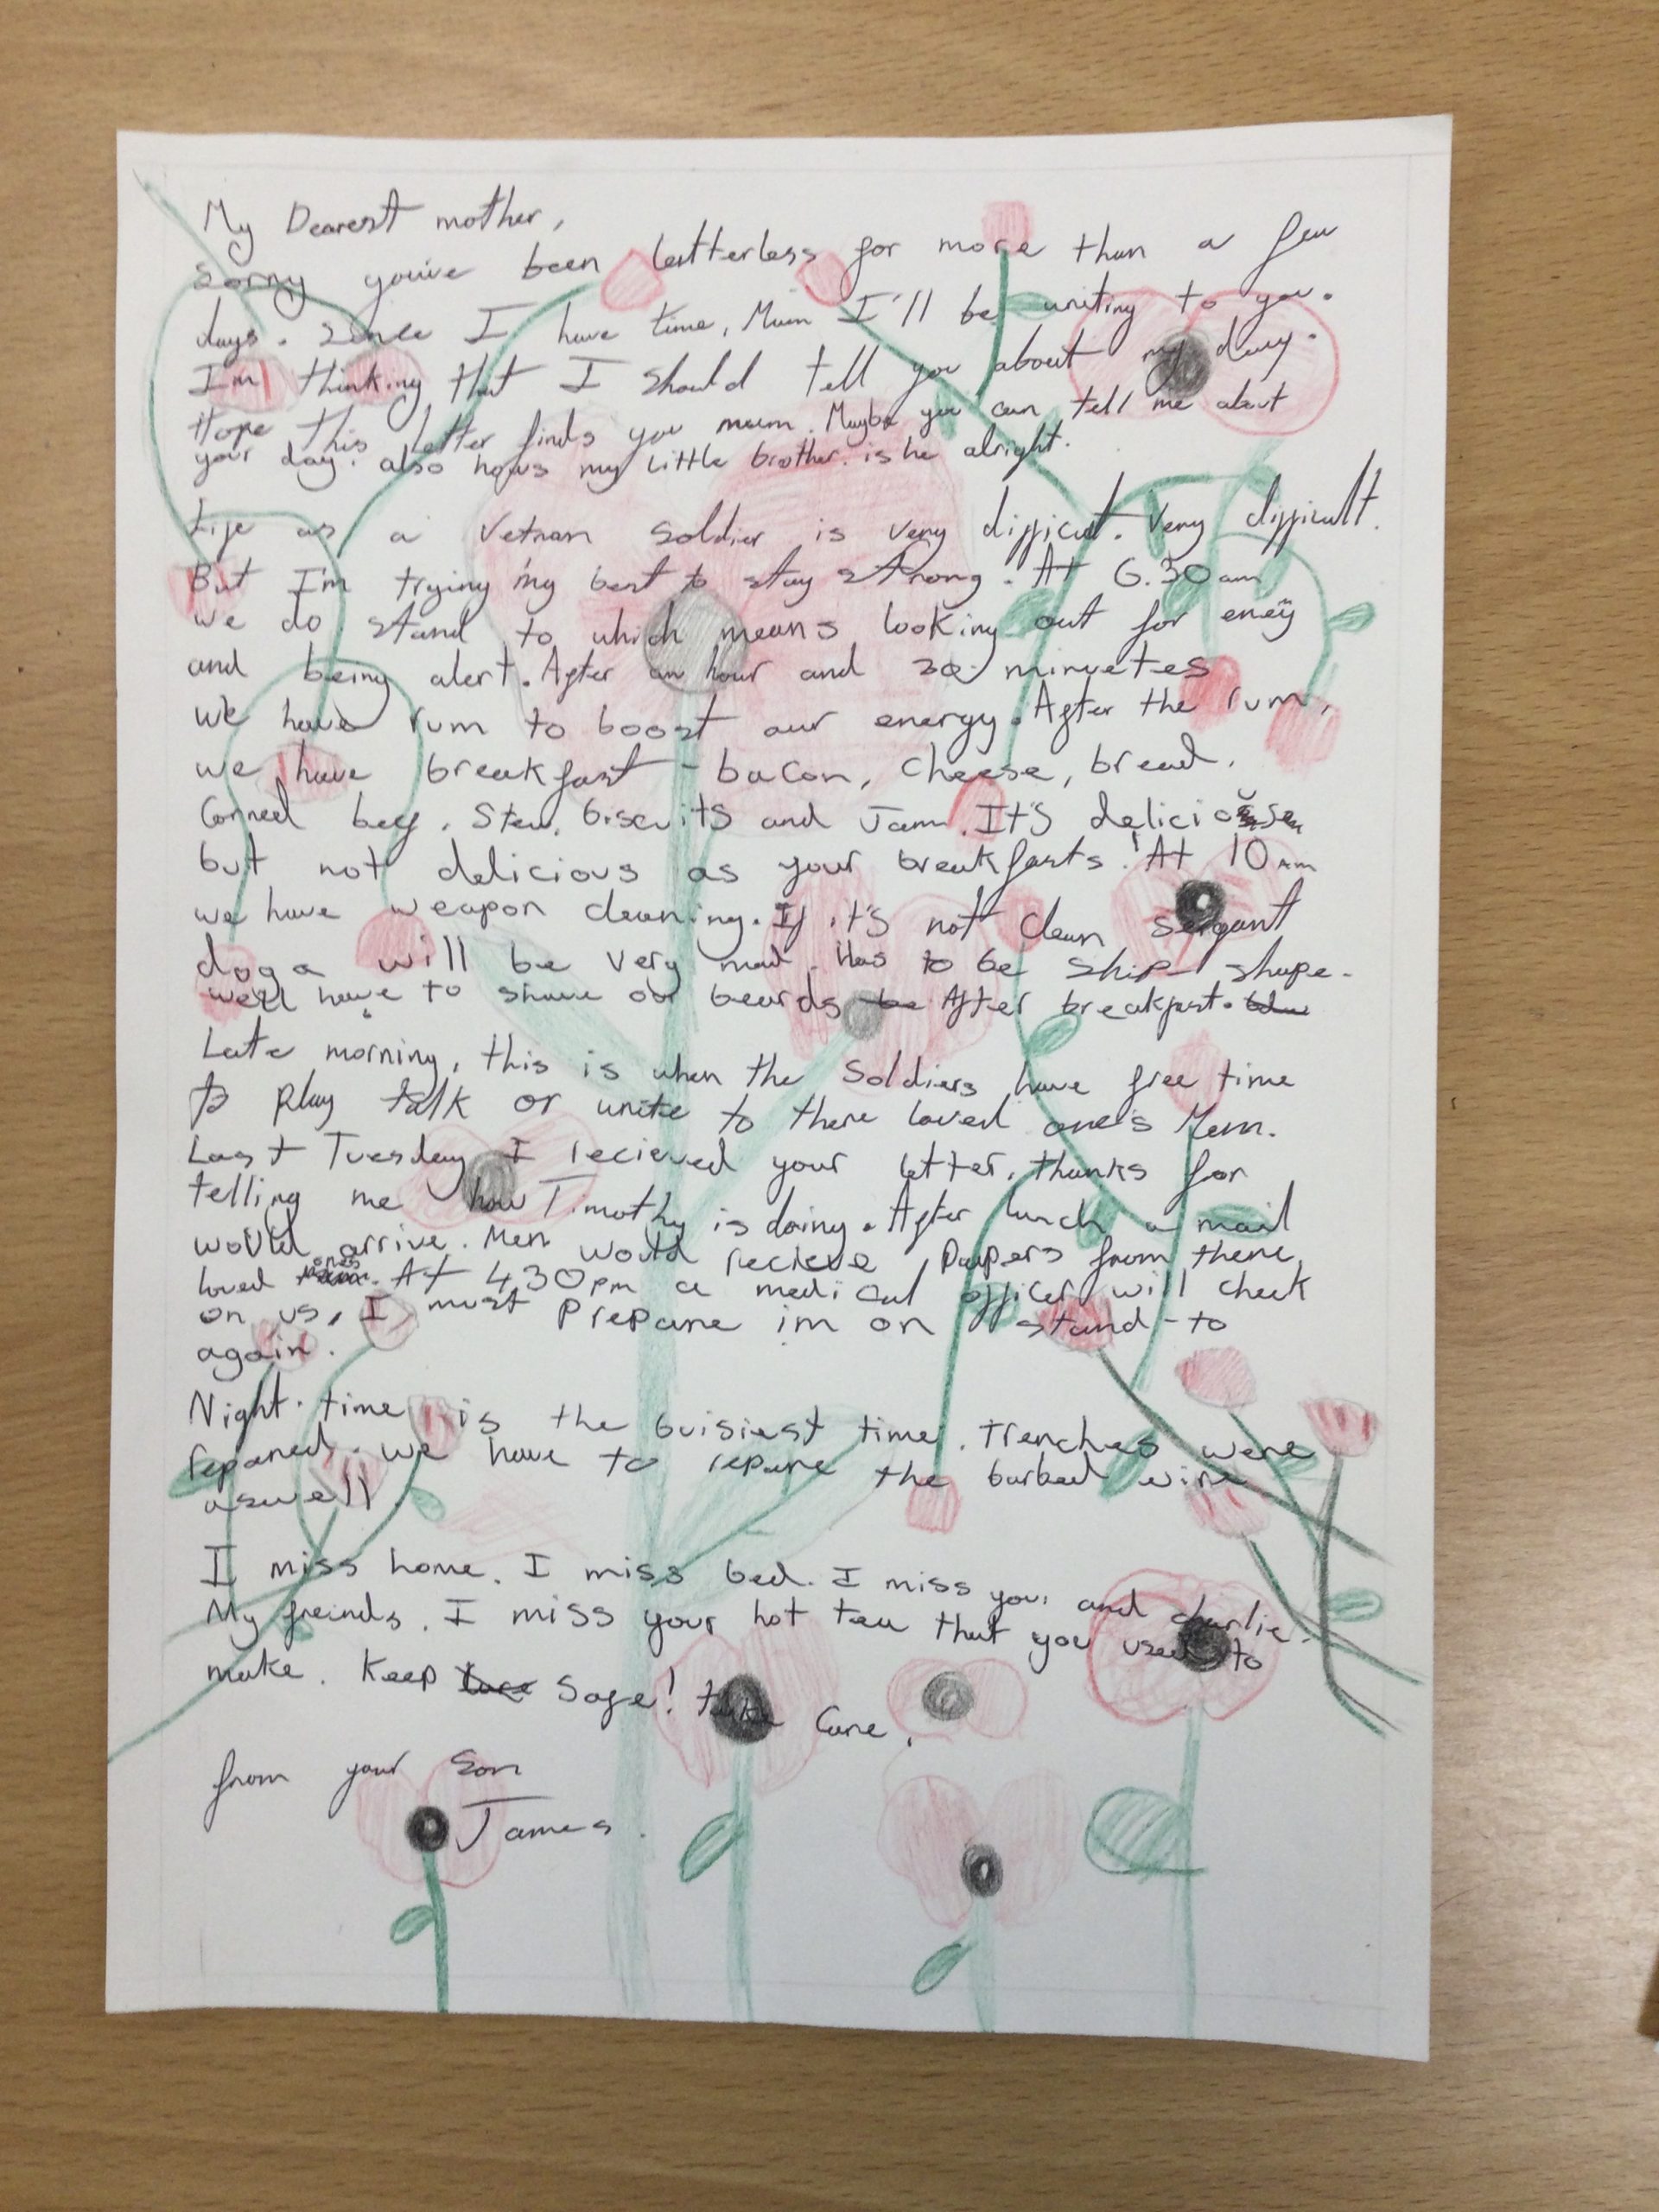 My Dearest mother,
Sorry you've been letterless for more than a few
days. Since I have time, Mum I'll be writing to you.
I'm thinking that I should tell you about my day.
Hope this letter finds you mum. Maybe you can tell me about
your day. also hows my little brother. is he alright.
Life as a Vetran soldier is very difficut. Very difficult.
But I'm trying my best to stay strong. At 6.30am
we do stand to which means looking out for eney
and being alert. After an hour and 30 minuetes
we have rum to boost our energy. After the rum,
we have breakfast - bacon, cheese, bread,
Corned beef, Stew, biscuits and Jam. It's
but not delicious as your breakfasts! At 10am
we have weapon cleaning. If it's not clean sergant
doga will be very mad. Has to be ship shape.
we'll have to shave our beards be After breakfast.
Late morning, this is when the soldiers have free time
to play talk or write to there loved one's Mum.
Last Tuesday I recieved your letter, thanks for
telling me how Timothy is doing. After lunch a mail
would arrive. Men would recieve papers from there
loved ones. At 4.30pm a medical officer will check
on us, I must prepare im on stand-to
again.
Night. time is the buisiest time. Trenches were
repared. we have to repare the barbed wire
aswell.
I miss home. I miss bed. I miss you, and charlie.
My freinds. I miss your hot tea that you used to
make. Keep Safe! take Care.
from your Son
James.